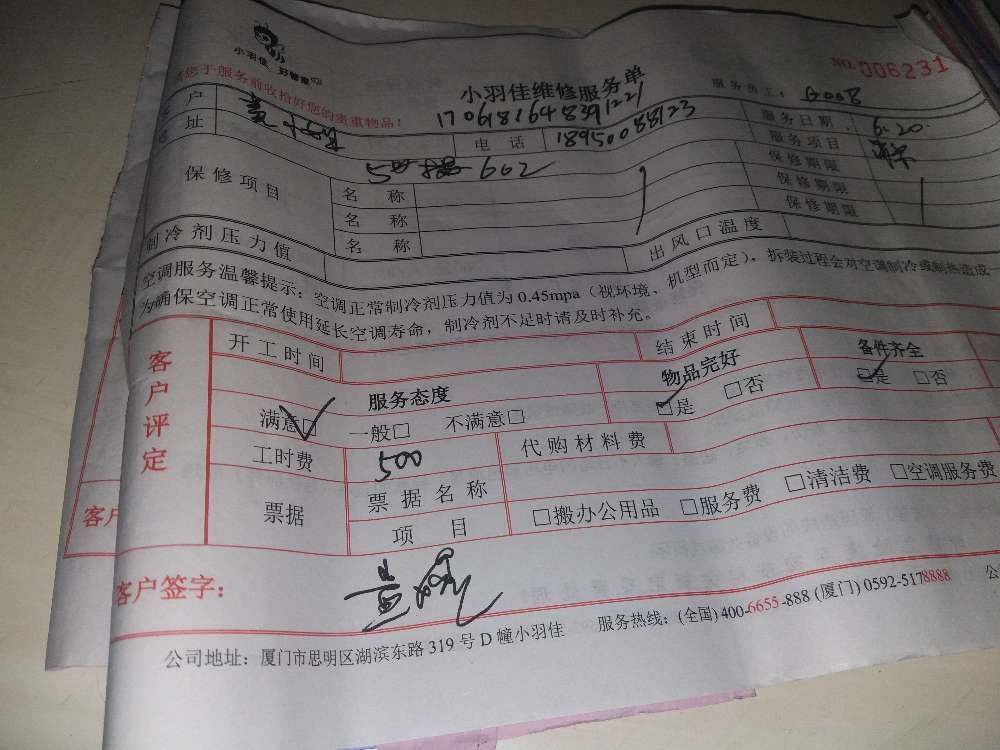 小羽佳 好管家
小羽佳维修服务单
NO. 006231
请您于服务前收拾好您的贵重物品!
服务员工:
客户
170618164839122
服务日期 6.20
地址
电话 18950088123
服务项目
602
保修项目 名称 保修期限
名称 保修期限
名称 保修期限
制冷剂压力值 出风口温度
空调服务温馨提示:空调正常制冷剂压力值为0.45mpa(视环境、机型而定),拆装过程会对空调制冷或制热造成一
为确保空调正常使用延长空调寿命,制冷剂不足时请及时补充。
客户评定
开工时间 结束时间
服务态度 物品完好 备件齐全
满意□ 一般□ 不满意□ □是 □否 □是 □否
工时费 500 代购材料费
票据 票据名称
项目 □搬办公用品 □服务费 □清洁费 □空调服务费
客户
客户签字:
公司地址:厦门市思明区湖滨东路319号D幢小羽佳 服务热线:(全国)400-6655-888 (厦门)0592-5178888 公